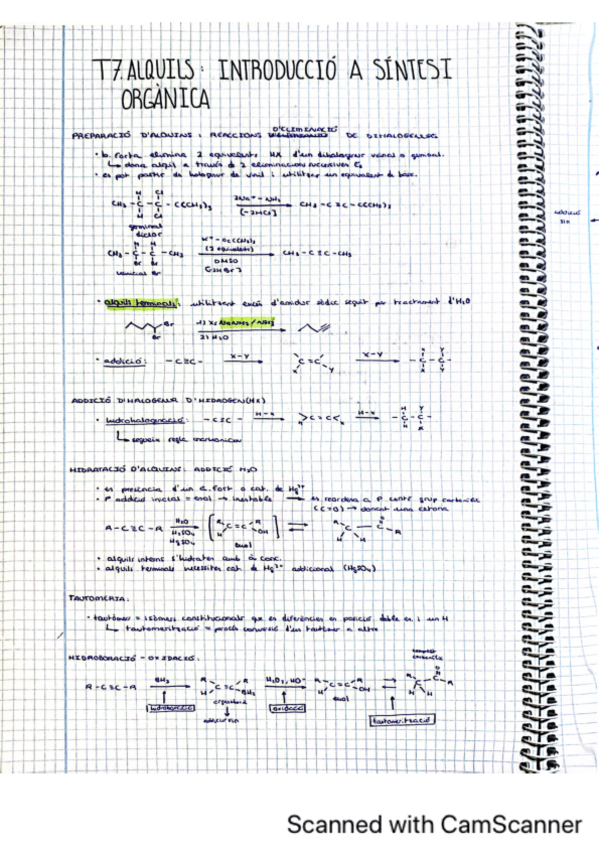 T7. ALQUILS: INTRODUCCIÓ A SÍNTESI
ORGÀNICA
PREPARACIÓ D'ALQUINS: REACCIONS D'ELIMINACIÓ DE DIHALOGENURS
• b. forta elimina 2 equivalents HX d'un dihalogenur veïnal o geminal.
↳ dona alquil a través de 2 eliminacions successives E2
• es pot partir de halogenur de vinil i utilitzar un equivalent de base.
H Cl
CH3 - C - C - C(CH3)3
H Cl
2Na+ -NH2
(-2HCl)
CH3 - C≡C - C(CH3)3
geminal
diclor
H H
CH3 - C - C - CH3
Br Br
K+ - OC(CH3)3
(2 equivalents)
DMSO
CH3 - C≡C - CH3
• alquils terminals: utilitzant excés d'amidur sòdic seguit per tractament d'H2O
Br
Br
2) H2O
• addició: -C≡C-
X-Y
C=C
X Y
X-Y
X Y
-C-C-
X Y
ADDICIÓ D'HALOGENUR D'HIDROGEN (HX)
• hidrohalogenació: -C≡C-
H-X
>C=C<
H X
H-X
-C-C-
↳ segueix regla
HIDRATACIÓ D'ALQUINS: ADDICIÓ H2O
• en presència d'un à. fort o cat. de Hg2+
• P addició inicial = enol → inestable → es reordena a P amb grup carbonílic
(C=O) → donant una cetona
R-C≡C-R
H2O
H2SO4
HgSO4
R C=C R
H OH
enol
⇌
R C - C R
H H
O
• alquils interns s'hidraten amb à conc.
• alquils terminals necessiten cat. de Hg2+ addicional (HgSO4)
TAUTOMERIA:
• tautòmer = isòmers constitucionals que es diferencien en posició doble en. i un H
↳ tautomerització = procés conversió d'un tautòmer a altre
HIDROBORACIÓ - OXIDACIÓ:
R-C≡C-R
BH3
hidroboració
R C=C R
H BH2
addició sin
H2O2, HO-
oxidació
R C=C R
H OH
enol
⇌
tautomerització
O
R C C R
H H
addició
sin
Scanned with CamScanner